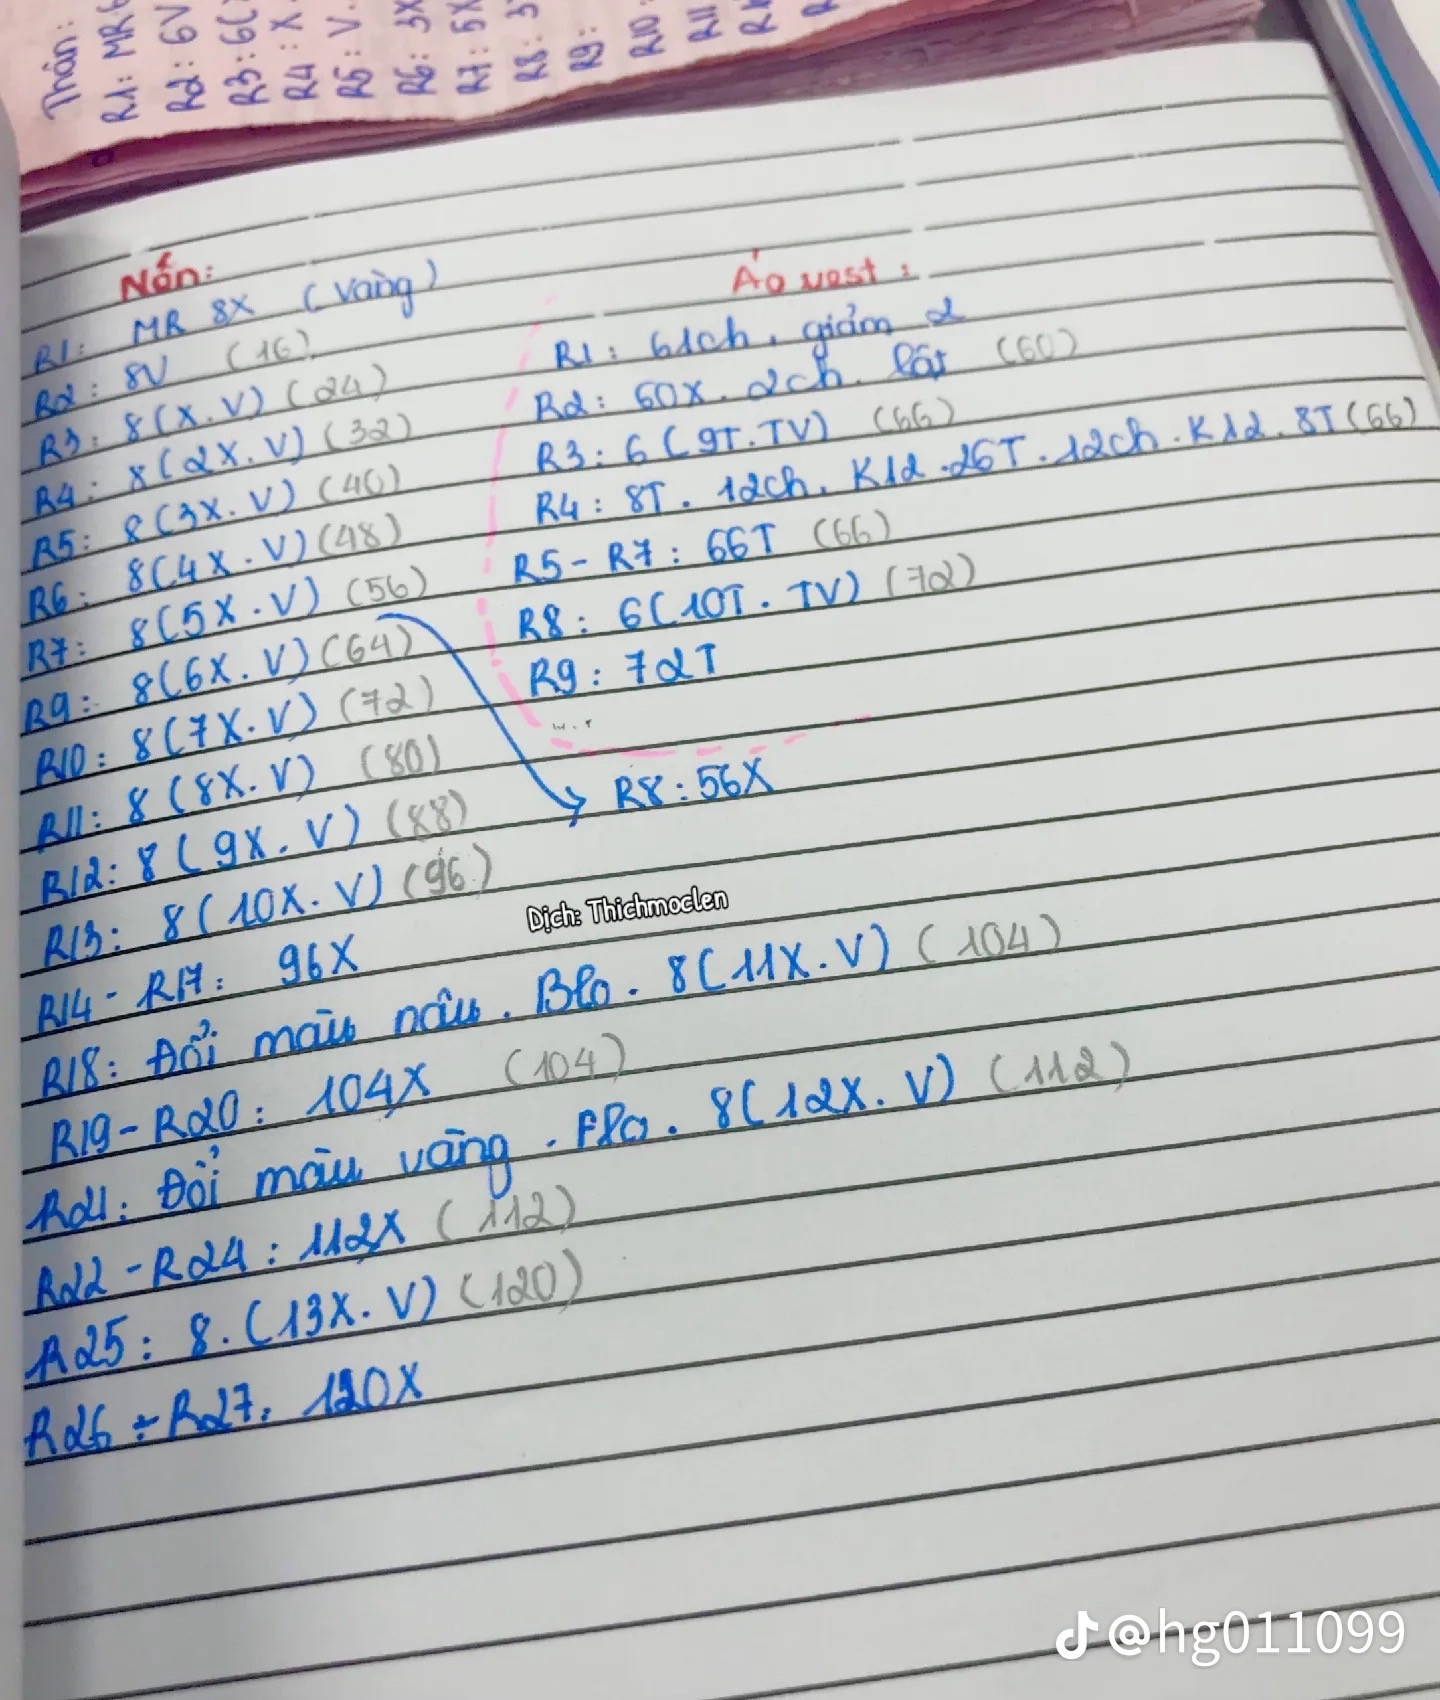 Thân:
R1: MR6
R2: 6V
R3: 6(
R4: X.
R5: V.
R6: 3X
R7: 5X
R8: 3
R9:
R10:
R11
Nón:
R1: MR 8X (vàng)
R2: 8V (16)
R3: 8(X.V) (24)
R4: 8(2X.V) (32)
R5: 8(3X.V) (40)
R6: 8(4X.V) (48)
R7: 8(5X.V) (56)
R9: 8(6X.V) (64)
R10: 8(7X.V) (72)
R11: 8(8X.V) (80)
R12: 8(9X.V) (88)
R13: 8(10X.V) (96)
R14 - R17: 96X
R18: Đổi màu nâu. Blo. 8(11X.V) (104)
R19 - R20: 104X (104)
R21: Đổi màu vàng. Flo. 8(12X.V) (112)
R22 - R24: 112X (112)
R25: 8.(13X.V) (120)
R26 ÷ R27: 120X
Áo vest:
R1: 61ch, giảm 2
R2: 60X. 2ch. lật (60)
R3: 6(9T.TV) (66)
R4: 8T. 12ch. K12.26T.12ch.K12.8T (66)
R5 - R7: 66T (66)
R8: 6(10T.TV) (72)
R9: 72T
R8: 56X
Dịch: Thichmoclen
@hg011099